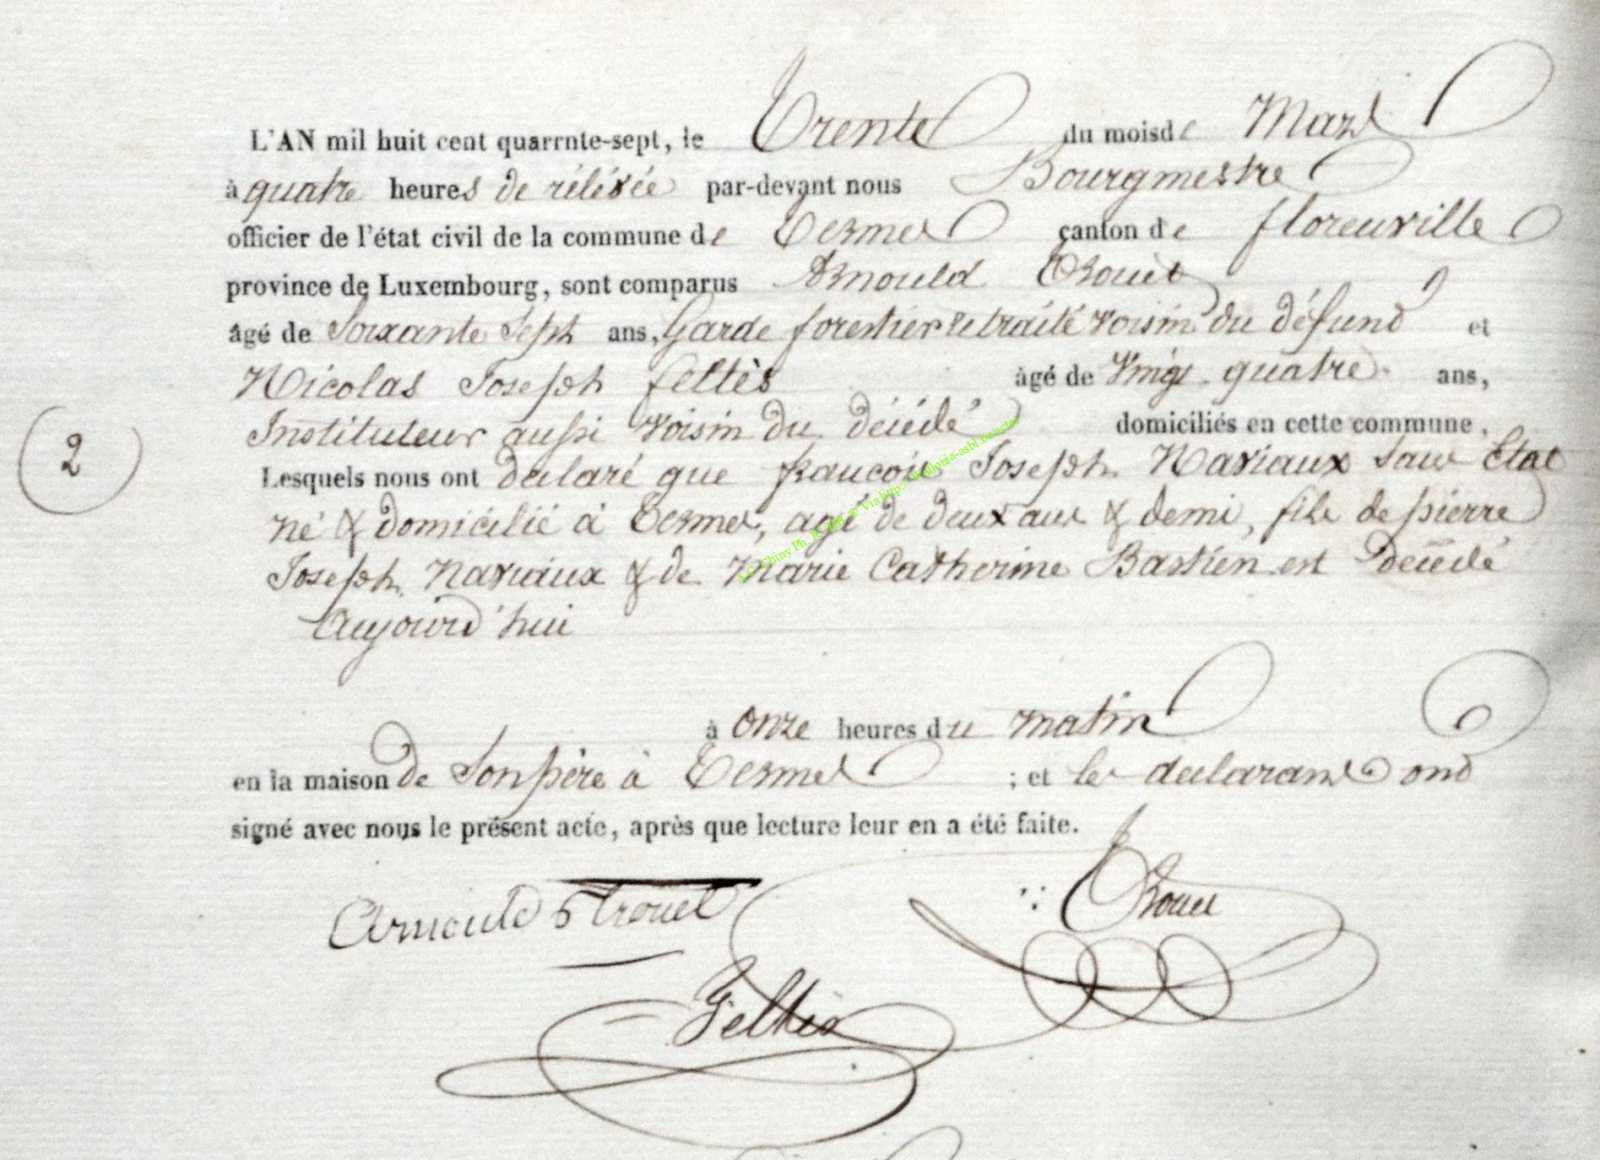 L'AN mil huit cent quarrnte-sept, le Trente du mois de Mars
à quatre heures de rélévée par-devant nous Bourgmestre
officier de l'état civil de la commune de Termes canton de florenville
province de Luxembourg, sont comparus Arnould Trouet
âgé de Soixante Sept ans, Garde forestier retraité voisin du défund et
Nicolas Joseph feltès âgé de Vingt quatre ans,
Instituteur aussi voisin du décédé domiciliés en cette commune,
2
Lesquels nous ont déclaré que francois Joseph Naviaux sans Etat
né & domicilié à Termes, agé de deux ans & demi, fils de pierre
Joseph Naviaux & de Marie Catherine Bastien est décédé
Aujourd'hui
à onze heures du matin
en la maison de Son père à Termes ; et les déclarants ond
signé avec nous le présent acte, après que lecture leur en a été faite.
Arnould Trouet Trouet
Feltès